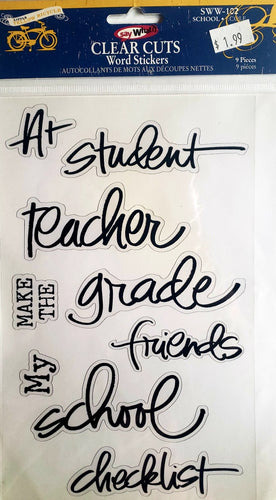 say What?
CLEAR CUTS
Word Stickers
AUTOCOLLANTS DE MOTS AUX DÉCOUPES NETTES
SWW-102
SCHOOL
9 Pieces
9 pièces
$1.99
BICYCLE
A+
student
teacher
MAKE
THE
grade
friends
My
school
checklist